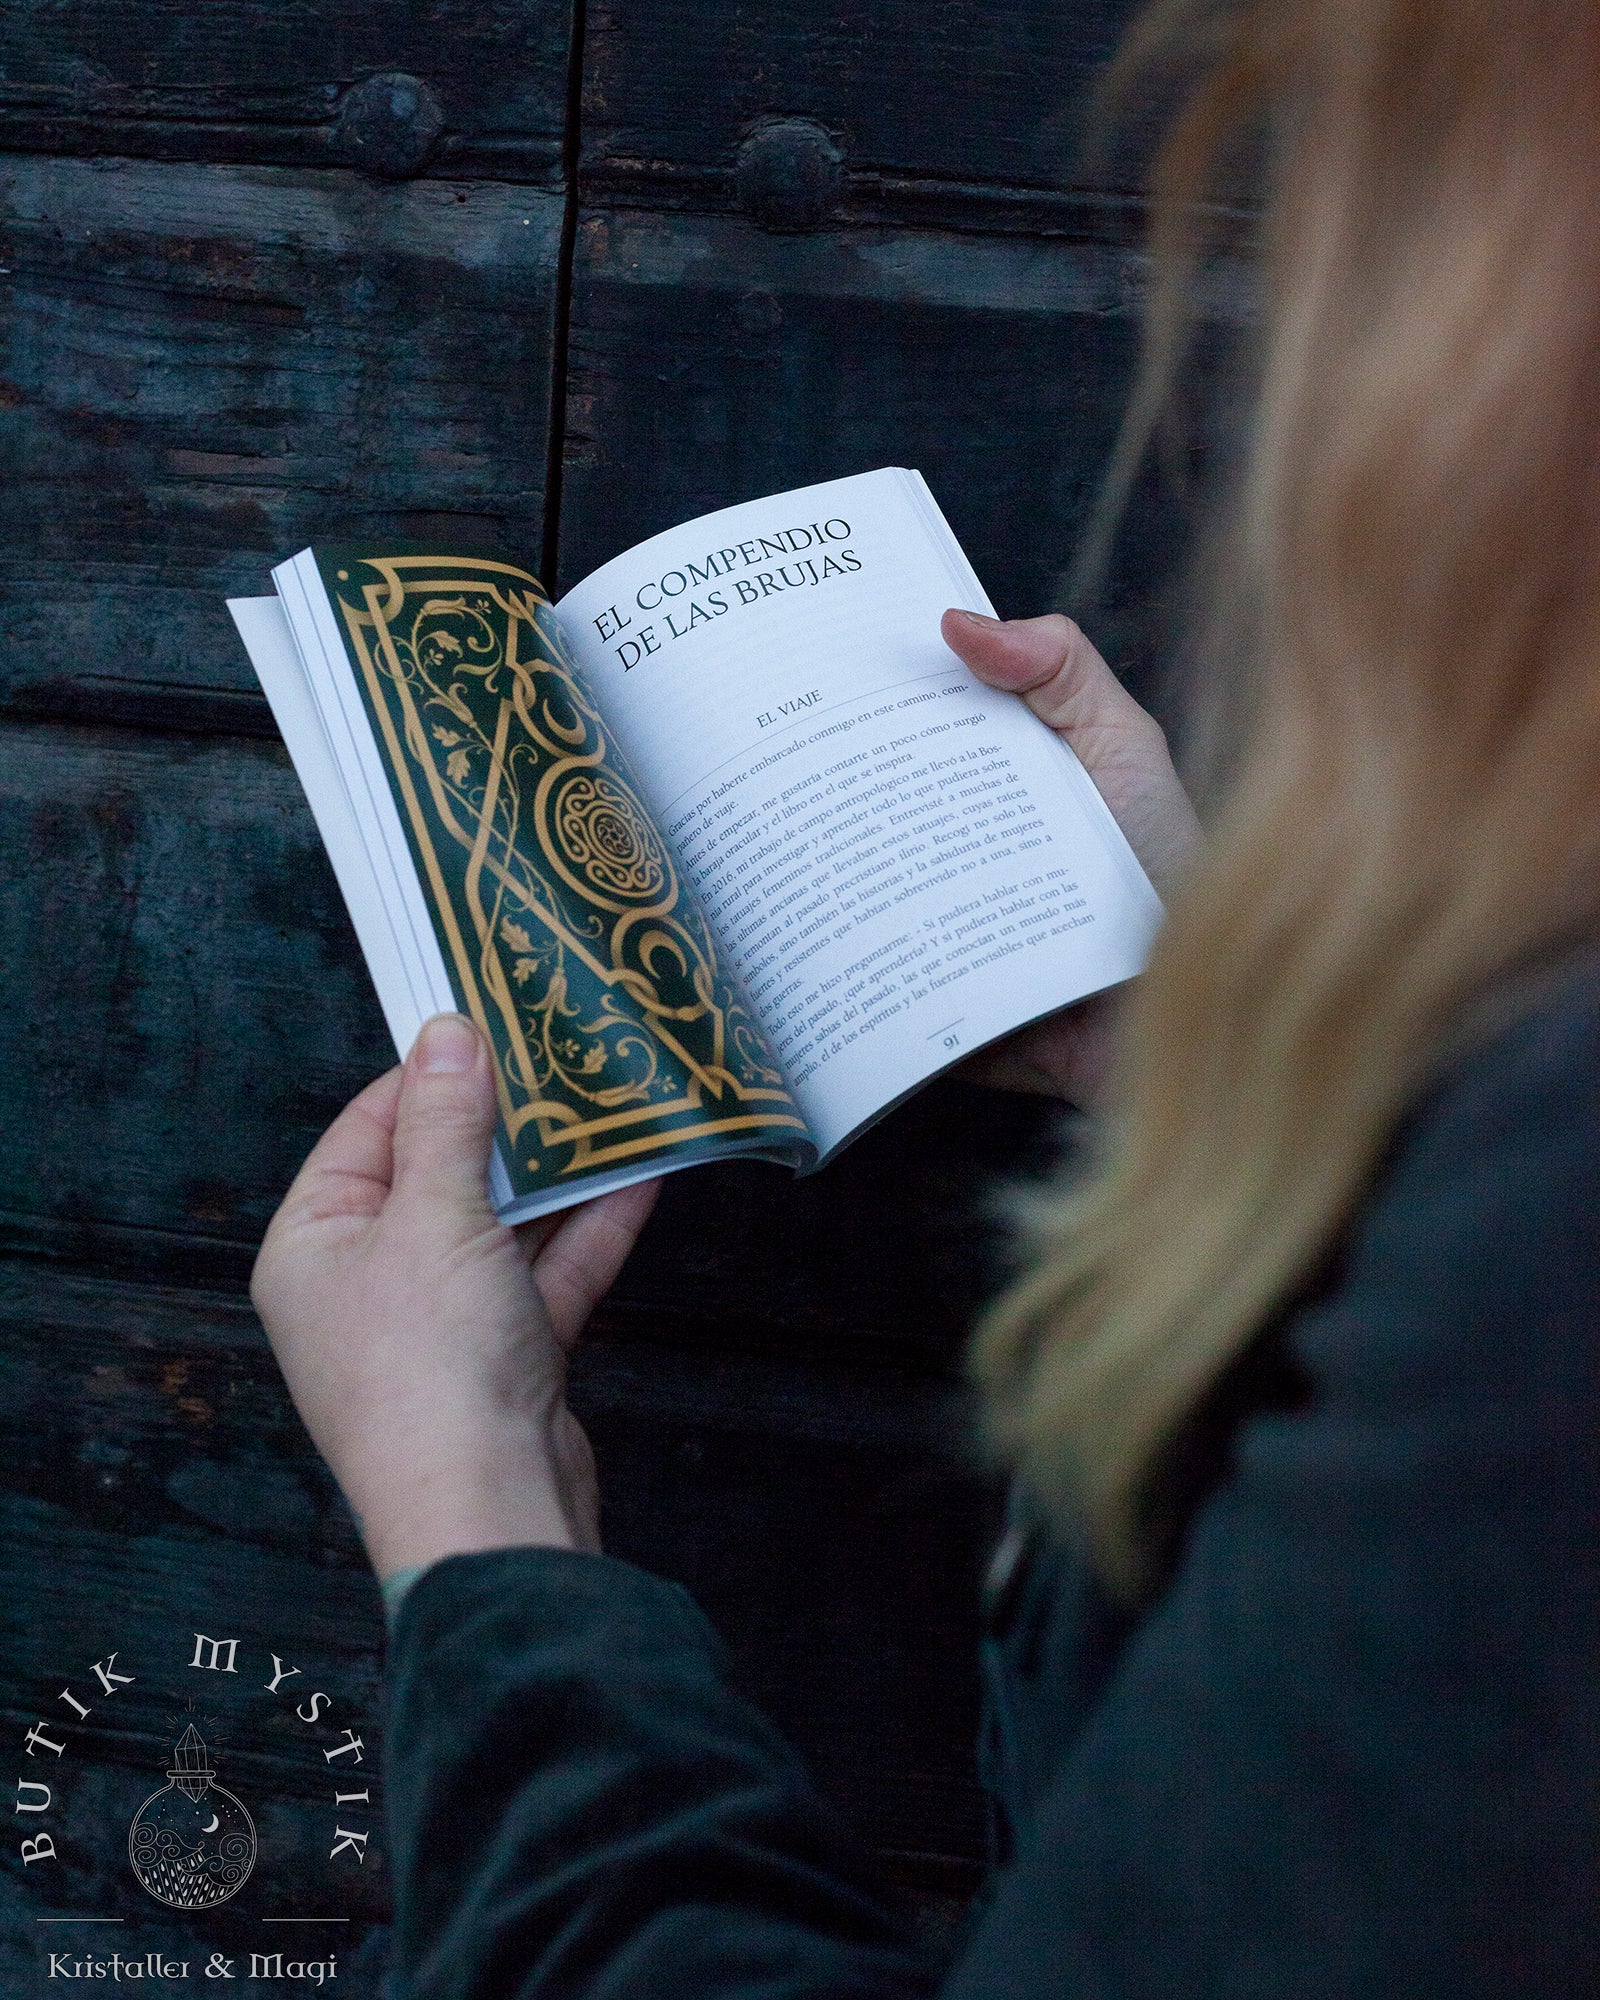 EL COMPENDIO
DE LAS BRUJAS
EL VIAJE
Gracias por haberte embarcado conmigo en este camino, com-
pañero de viaje.
Antes de empezar, me gustaría contarte un poco cómo surgió
la baraja oracular y el libro en el que se inspira.
En 2016, mi trabajo de campo antropológico me llevó a la Bos-
nia rural para investigar y aprender todo lo que pudiera sobre
los tatuajes femeninos tradicionales. Entrevisté a muchas de
las últimas ancianas que llevaban estos tatuajes, cuyas raíces
se remontan al pasado precristiano ilirio. Recogí no solo los
símbolos, sino también las historias y la sabiduría de mujeres
fuertes y resistentes que habían sobrevivido no a una, sino a
dos guerras.
Todo esto me hizo preguntarme: - Si pudiera hablar con mu-
jeres del pasado, ¿qué aprendería? Y si pudiera hablar con las
mujeres sabias del pasado, las que conocían un mundo más
amplio, el de los espíritus y las fuerzas invisibles que acechan
91
BUTIK MYSTIK
Kristaller & Magi